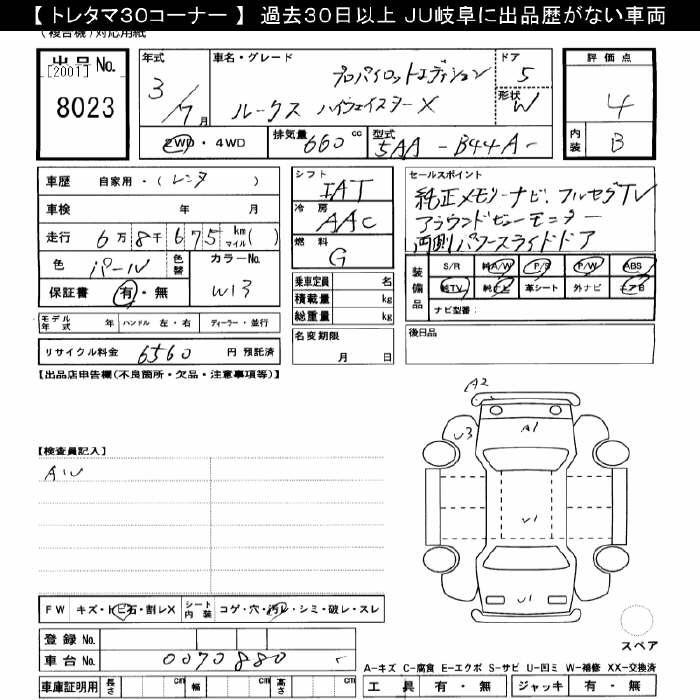 【 トレタマ30コーナー 】 過去30日以上 JU岐阜に出品歴がない車両
(複合機)対応用紙
出品No.
[2001]
8023
年式 3/7月
車名・グレード プロパイロットエディション
ルークス ハイウェイスターX
ドア 5
形状 W
2WD・4WD
排気量 660 cc
型式 5AA - B44A -
評価点 4
内装 B
車歴 自家用・( レンタ )
車検 年 月
走行 6万8千675 km マイル( )
色 パール 色替 カラーNo. W13
保証書 有・無
モデル年式 年 ハンドル 左・右 ディーラー・並行
リサイクル料金 6560 円 預託済
シフト IAT
冷房 AAC
燃料 G
乗車定員 名
積載量 kg
総重量 kg
名変期限 月 日
セールスポイント
純正メモリーナビ、フルセグTV
アラウンドビューモニター
両側パワースライドドア
装備品 S/R 純A/W P/S P/W ABS
純TV 純ナビ 革シート 外ナビ エアB
ナビ型番:
後日品
【出品店申告欄(不良箇所・欠品・注意事項等)】
【検査員記入】
A2
U3
A1
U1
U1
FW キズ・トビ石・割レX シート内装 コゲ・穴・汚レ・シミ・破レ・スレ
登録 No.
車台 No. 0070880
車庫証明用 長さ cm 幅 cm 高さ cm
スペア
A-キズ C-腐食 E-エクボ S-サビ U-凹ミ W-補修 XX-交換済
工具 有・無 ジャッキ 有・無